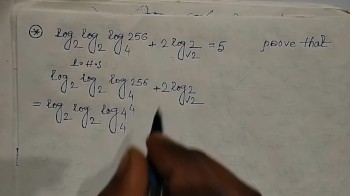 ⊛ log₂ log₂ log₄ 256 + 2 log_√2 2 = 5 prove that
L.H.S
log₂ log₂ log₄ 256 + 2 log_√2 2
= log₂ log₂ log₄ 4⁴